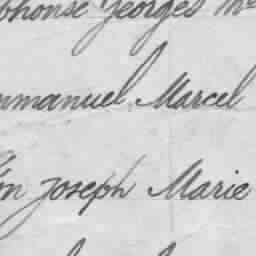 phonse Georges M
mmanuel Marcel
on Joseph Marie